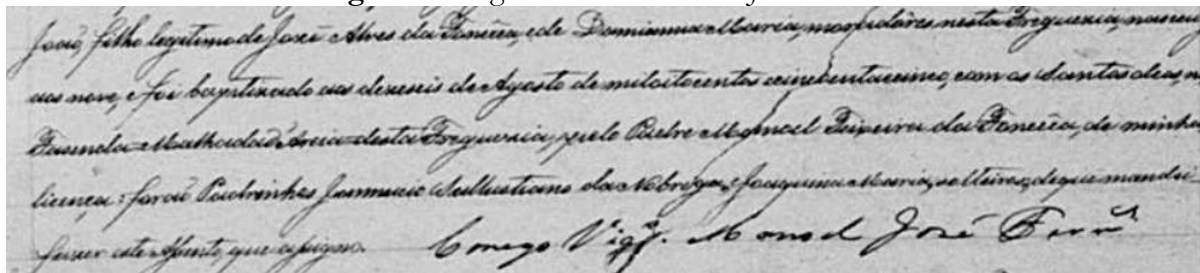 João, filho legitimo de José Alves da Fonsêca, e de Damianna Maria, moradôres nesta Freguezia, nasceu
aos nove, e foi baptizado aos deseseis de Agosto de mil oitocentos cincoenta e cinco, com os Santos oleos, na
Fasenda Malhada d'Areia desta Freguezia, pelo Padre Manoel Teixeira da Fonsêca, de minha
licença: forão Padrinhos Januario Sallustiano da Nobrega, e Joaquina Maria, solteiros; de que mandei
fazer este Assento, que assigno. Conego Vigrº. Manoel José Fern